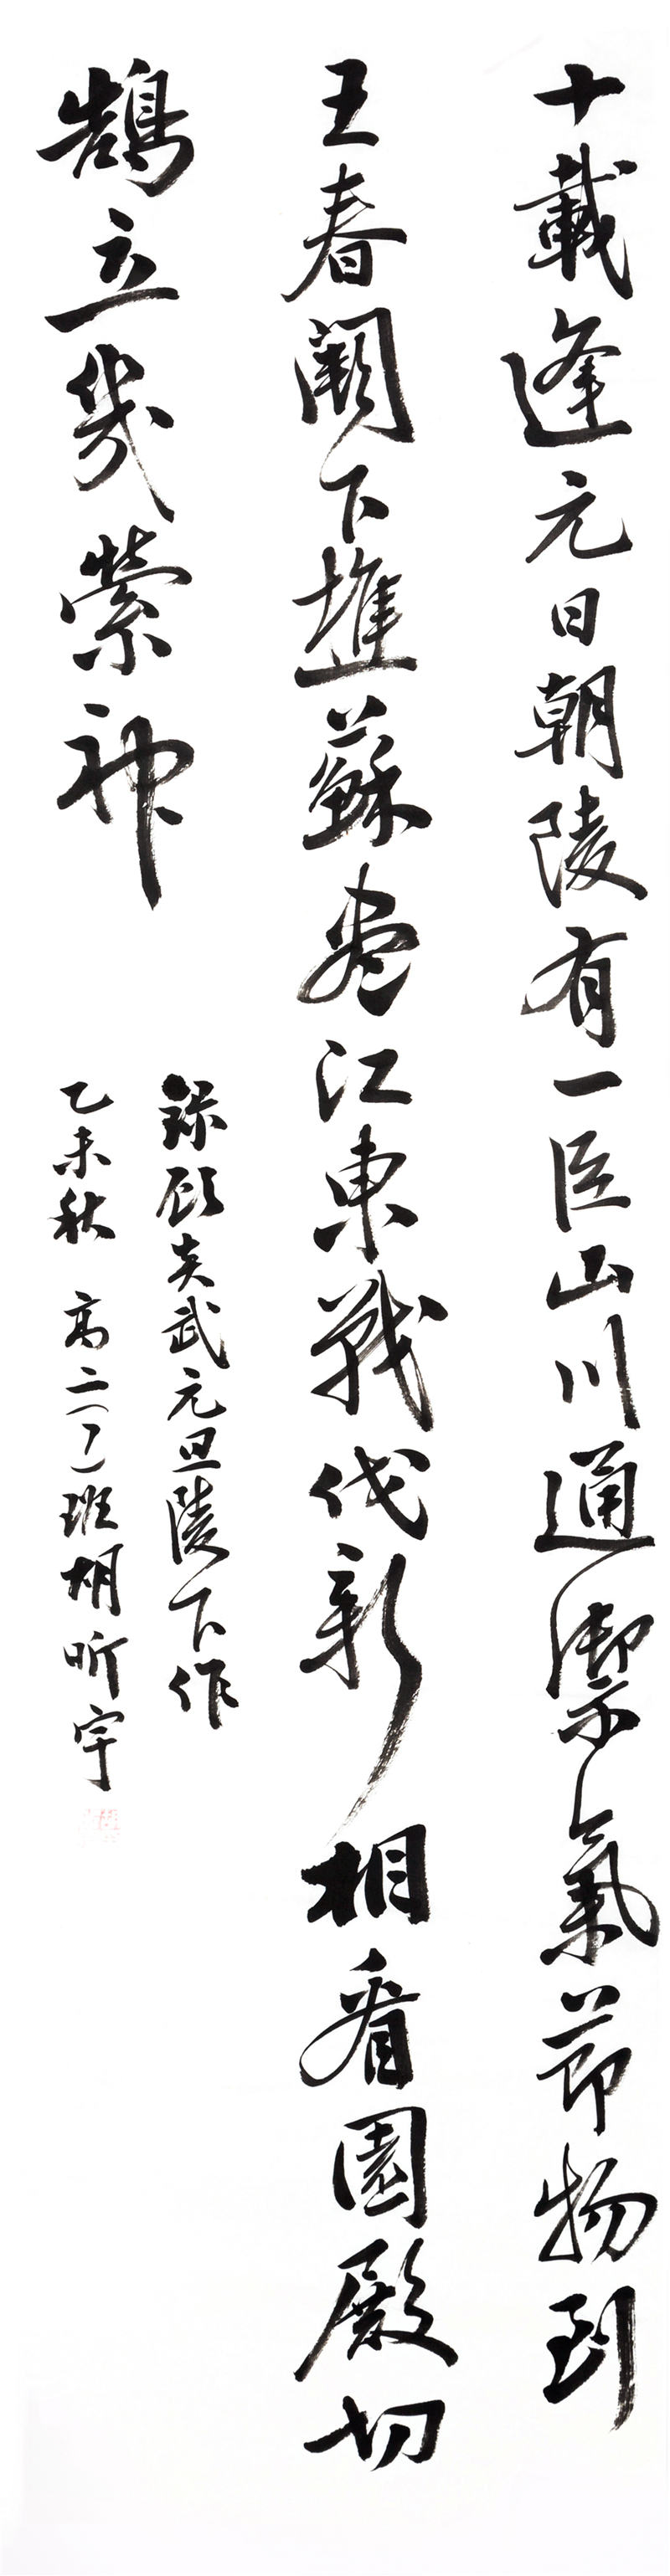 十載逢元日朝陵有一臣山川通禦氣節物到
王春闕下樵蘇盡江東戰伐新相看園殿切
鵠立幾縈神
錄顾炎武元旦陵下作
乙未秋 高二(7)班胡昕宇